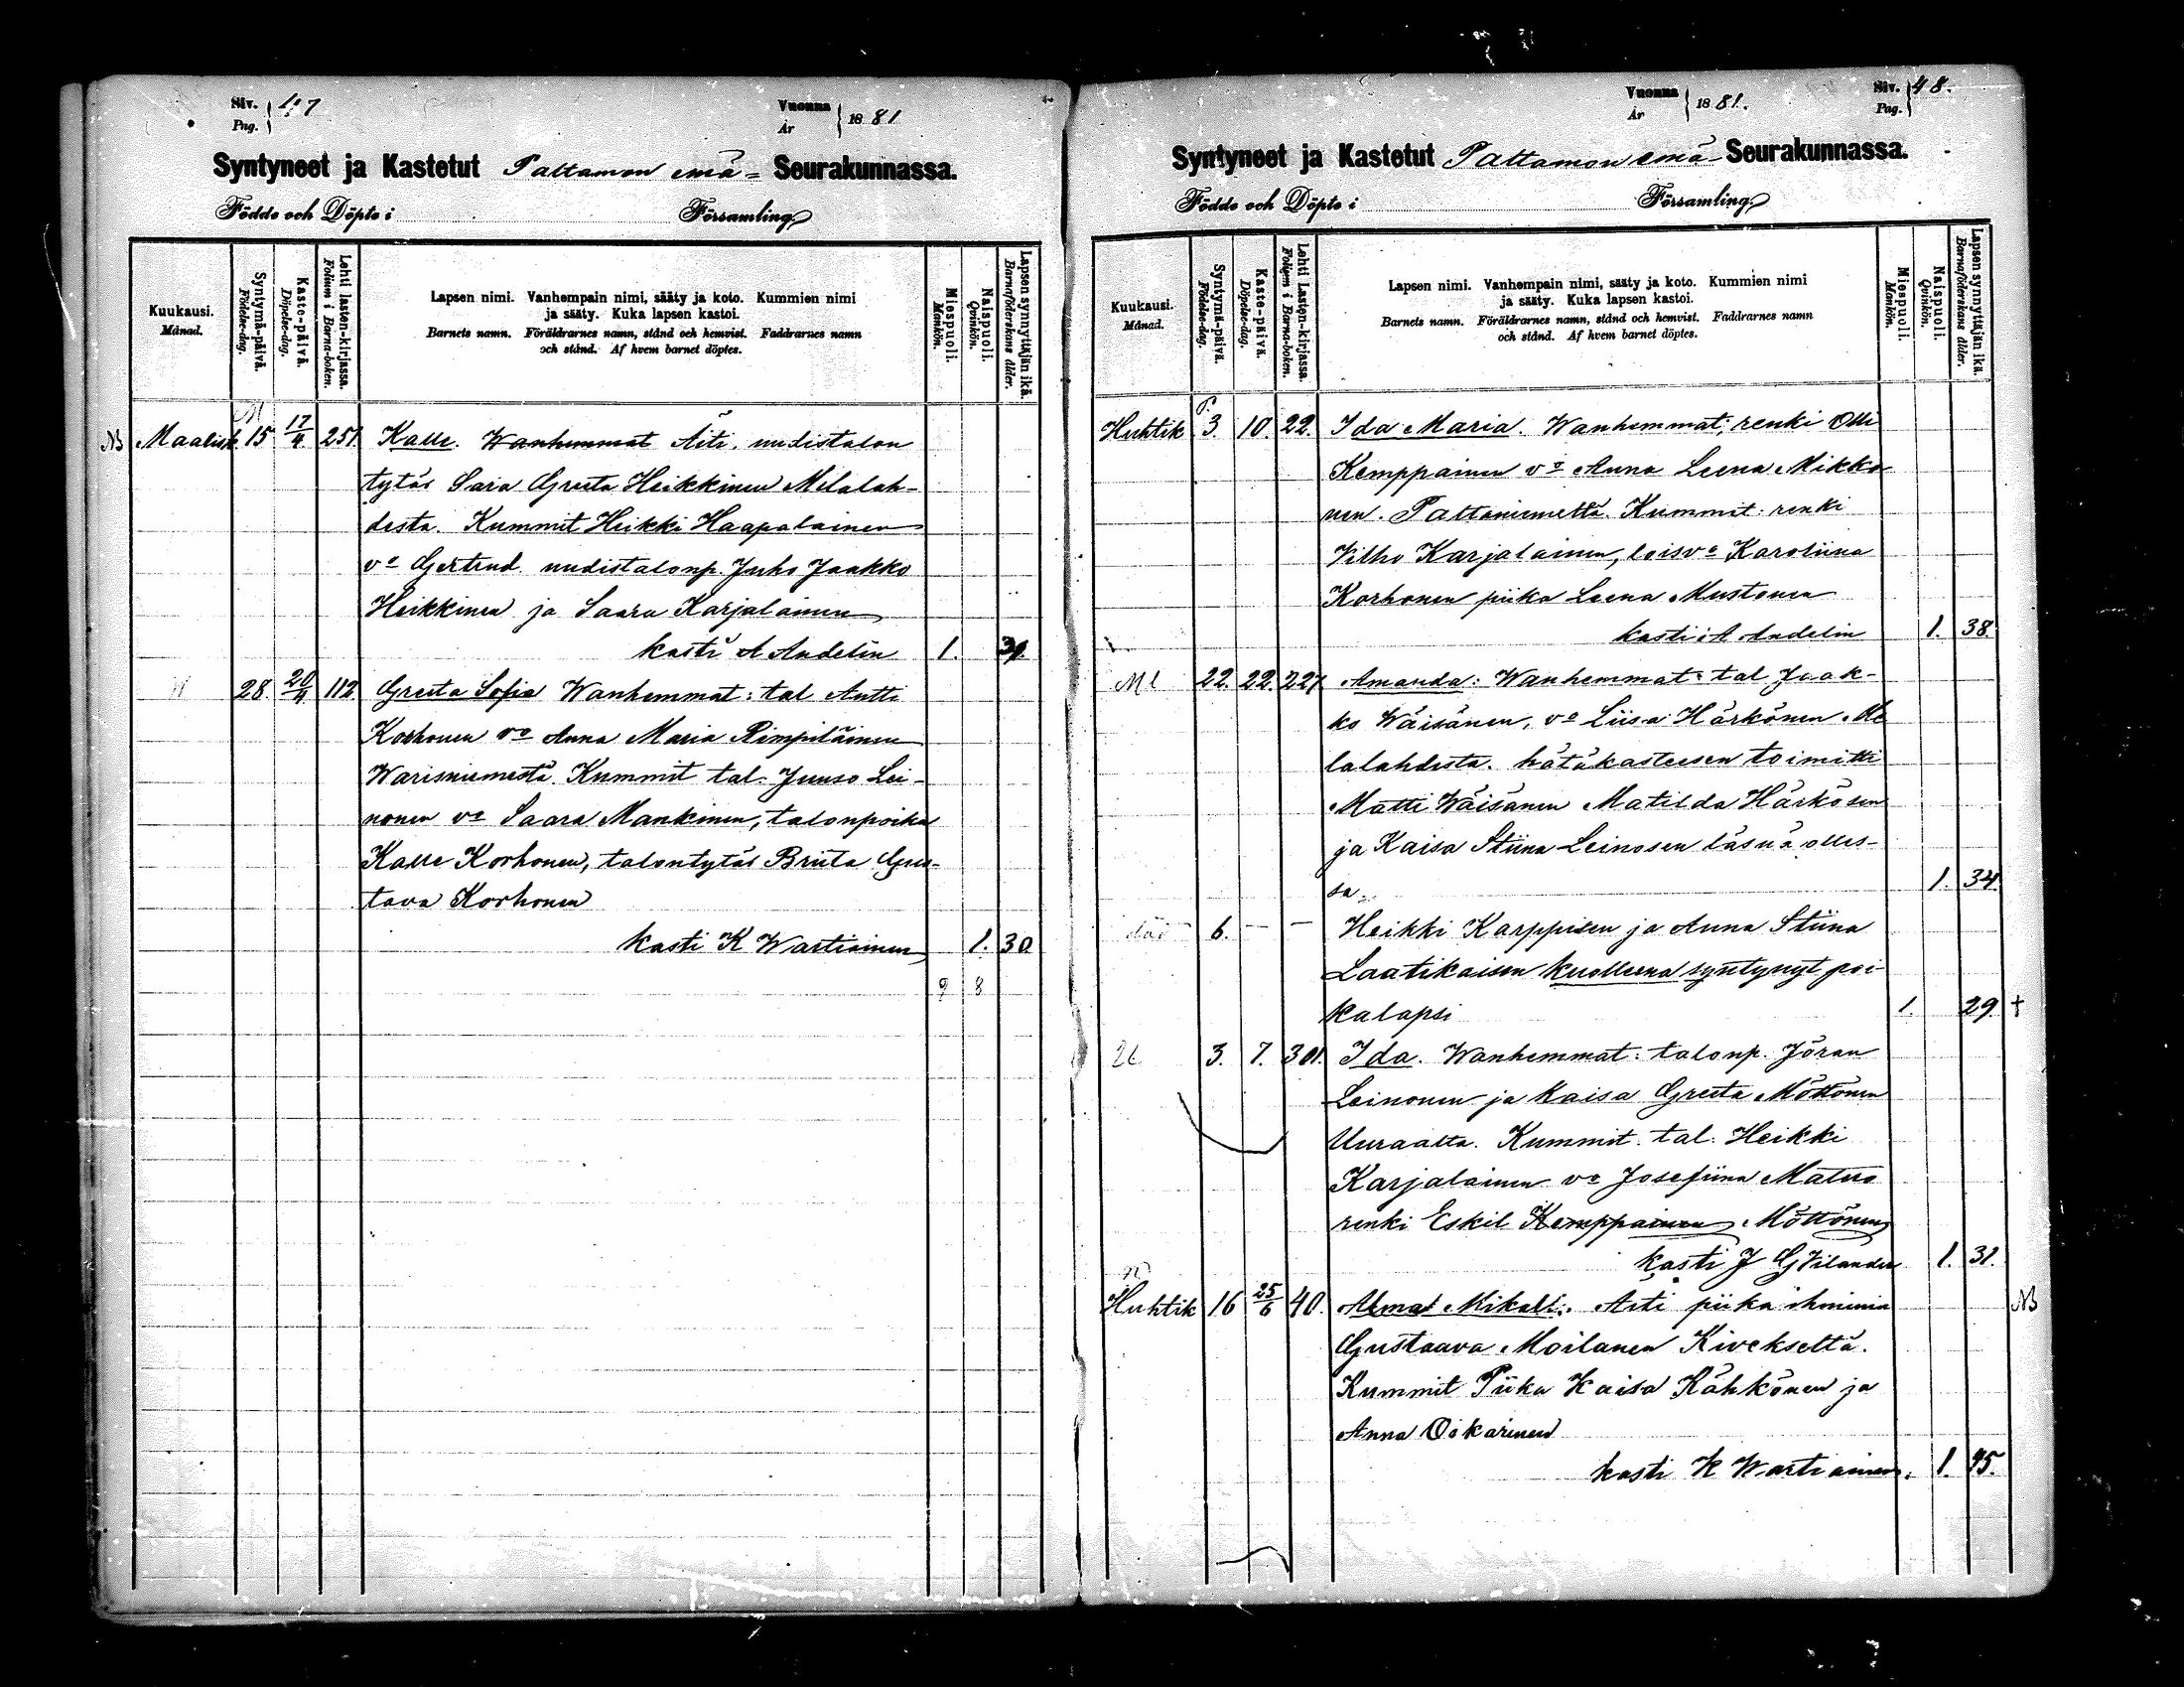 Siv. 147
Pag.
Vuonna 1881
År
Syntyneet ja Kastetut Paltamon emä- Seurakunnassa.
Födde och Döpte i Församling
Kuukausi. Månad.
Syntymä-päivä. Födelse-dag.
Kaste-päivä. Döpelse-dag.
Lehti lasten-kirjassa. Folium i Barna-boken.
Lapsen nimi. Vanhempain nimi, sääty ja koto. Kummien nimi
ja sääty. Kuka lapsen kastoi.
Barnets namn. Föräldrarnes namn, stånd och hemvist. Faddrarnes namn
och stånd. Af hvem barnet döptes.
Miespuoli. Mankön.
Naispuoli. Qvinkön.
Lapsen synnyttäjän ikä. Barnaföderskans ålder.
NB Maalisk 15 17/4. 251. Kalle. Wanhemmat Äiti, uudistalon
tytär Sara Greeta Heikkinen Melalah-
desta. Kummit Heikki Haapalainen
vo Gertrud uudistalonp. Juho Jaakko
Heikkinen ja Saara Karjalainen
kasti A Andelin 1. 31.
28. 20/4 112 Greeta Sofia Wanhemmat: tal Antti
Korhonen vo Anna Maria Rimpiläinen
Warisniemestä Kummit tal. Juuso Lei-
nonen vo Saara Mankinen, talonpoika
Kalle Korhonen, talontytär Briita Gus-
tava Korhonen
kasti K Wartiainen 1. 30.
9 8
Vuonna 1881.
År
Siv. 48.
Pag.
Syntyneet ja Kastetut Paltamon emä- Seurakunnassa.
Födde och Döpte i Församling
Kuukausi. Månad.
Syntymä-päivä. Födelse-dag.
Kaste-päivä. Döpelse-dag.
Lehti Lasten-kirjassa. Folium i Barna-boken.
Lapsen nimi. Vanhempain nimi, sääty ja koto. Kummien nimi
ja sääty. Kuka lapsen kastoi.
Barnets namn. Föräldrarnes namn, stånd och hemvist. Faddrarnes namn
och stånd. Af hvem barnet döptes.
Miespuoli. Mankön.
Naispuoli. Qvinkön.
Lapsen synnyttäjän ikä. Barnaföderskans ålder.
P.
Huhtik 3. 10. 22. Ida Maria. Wanhemmat; renki Olli
Kemppainen vo Anna Leena Mikko-
nen. Paltaniemeltä. Kummit: renki
Vilho Karjalainen, loisvo Karoliina
Korhonen piika Leena Mustonen
kasti: A Andelin 1. 38.
Ml 22. 22. 227. Amanda: Wanhemmat: tal Jaak-
ko Wäisänen, vo Liisa Härkönen Me
lalahdesta. hätäkasteesen toimitti
Matti Wäisänen Matilda Härkösen
ja Kaisa Stiina Leinosen läsnä olles-
sa. 1. 34.
6. — — Heikki Karppisen ja Anna Stiina
Laatikaisen kuolleena syntynyt poi-
kalapsi 1. 29. †
3. 7. 301. Ida. Wanhemmat: talonp. Jöran
Leinonen ja Kaisa Greeta Möttönen
Uuraalta. Kummit: tal. Heikki
Karjalainen vo Josefiina Matero
renki Eskil Kemppainen Möttönen
kasti J G Vilander 1. 31.
Huhtik 16 25/6 40. Alma Mikali. Äiti piika ihminen
Gustaava Moilanen Kivekseltä.
Kummit Piika Kaisa Kähkönen ja
Anna Oikarinen
kasti K Wartiainen. 1. 25.
NB